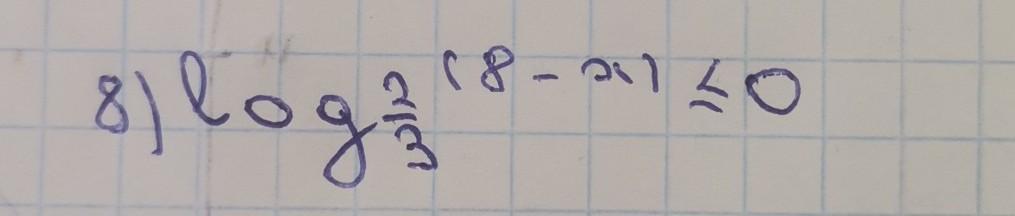 8) log 2/3 (8 - x) ≤ 0